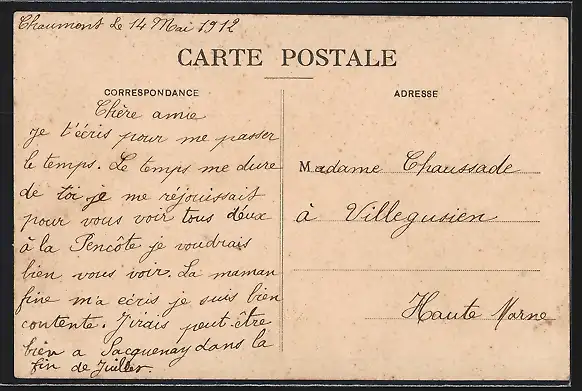 Chaumont le 14 Mai 1912
CARTE POSTALE
CORRESPONDANCE
ADRESSE
Chère amie
je t'écris pour me passer
le temps. Le temps me dure
de toi je me réjouissait
pour vous voir tous deux
à la Pencôte je voudrais
bien vous voir. La maman
fine m'a ecris je suis bien
contente. J'irais peut-être
bien a Sacquenay dans la
fin de Juillet.
Madame Chaussade
à Villegusien
Haute Marne